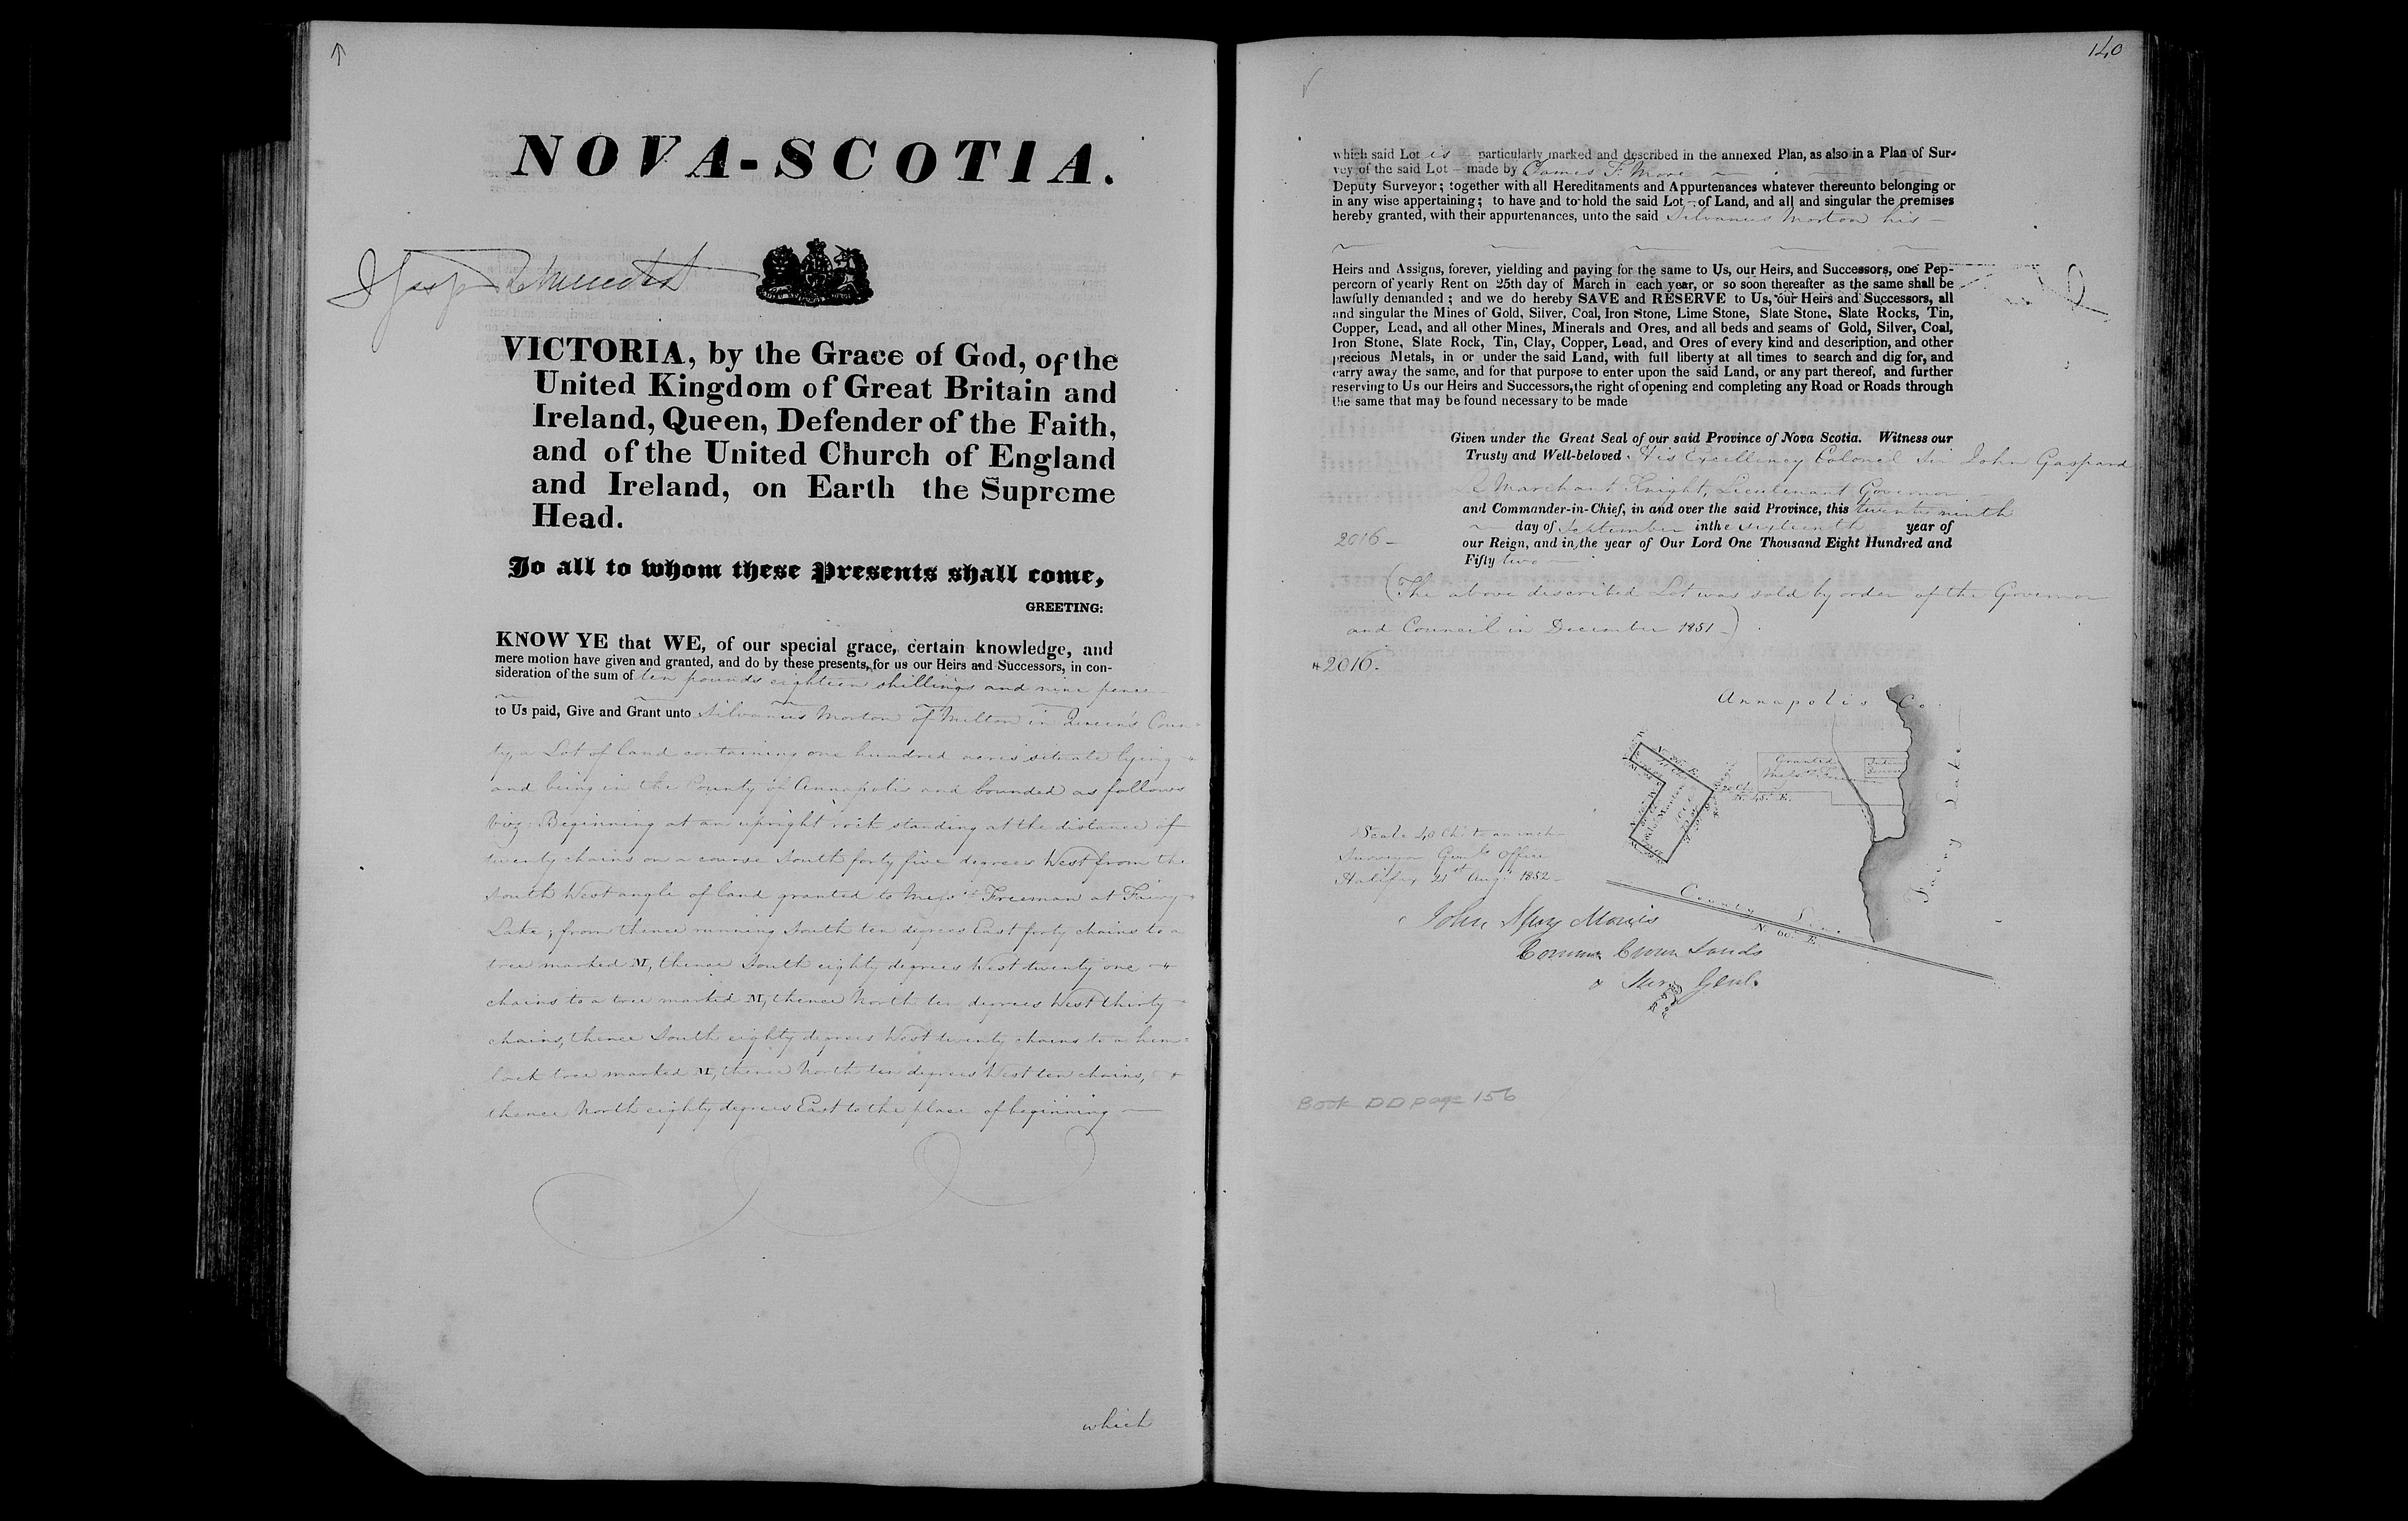 NOVA-SCOTIA.
VICTORIA, by the Grace of God, of the
United Kingdom of Great Britain and
Ireland, Queen, Defender of the Faith,
and of the United Church of England
and Ireland, on Earth the Supreme
Head.
To all to whom these Presents shall come,
GREETING:
KNOW YE that WE, of our special grace, certain knowledge, and
mere motion have given and granted, and do by these presents, for us our Heirs and Successors, in con-
sideration of the sum of ten pounds eighteen shillings and nine pence
to Us paid, Give and Grant unto Silvanus Morton of Milton in Queen's Coun-
ty, a Lot of land containing one hundred acres situate lying
and being in the County of Annapolis and bounded as follows
Viz: Beginning at an upright rock standing at the distance of
twenty chains on a course South forty five degrees West from the
South West angle of land granted to Messrs Freeman at Fairy
Lake; from thence running South ten degrees East forty chains to a
tree marked M, thence South eighty degrees West twenty one
chains to a tree marked M, thence North ten degrees West thirty
chains, thence South eighty degrees West twenty chains to a hem=
lock tree marked M, thence North ten degrees West ten chains,
thence North eighty degrees East to the place of beginning
which
140
which said Lot is particularly marked and described in the annexed Plan, as also in a Plan of Sur-
vey of the said Lot made by James F. More
Deputy Surveyor; together with all Hereditaments and Appurtenances whatever thereunto belonging or
in any wise appertaining; to have and to hold the said Lot of Land, and all and singular the premises
hereby granted, with their appurtenances, unto the said Silvanus Morton his
Heirs and Assigns, forever, yielding and paying for the same to Us, our Heirs, and Successors, one Pep-
percorn of yearly Rent on 25th day of March in each year, or so soon thereafter as the same shall be
lawfully demanded; and we do hereby SAVE and RESERVE to Us, our Heirs and Successors, all
and singular the Mines of Gold, Silver, Coal, Iron Stone, Lime Stone, Slate Stone, Slate Rocks, Tin,
Copper, Lead, and all other Mines, Minerals and Ores, and all beds and seams of Gold, Silver, Coal,
Iron Stone, Slate Rock, Tin, Clay, Copper, Lead, and Ores of every kind and description, and other
precious Metals, in or under the said Land, with full liberty at all times to search and dig for, and
carry away the same, and for that purpose to enter upon the said Land, or any part thereof, and further
reserving to Us our Heirs and Successors, the right of opening and completing any Road or Roads through
the same that may be found necessary to be made
Given under the Great Seal of our said Province of Nova Scotia. Witness our
Trusty and Well-beloved His Excellency Colonel Sir John Gaspard
Le Marchant Knight, Lieutenant Governor
and Commander-in-Chief, in and over the said Province, this twenty ninth
day of September in the sixteenth year of
2016
our Reign, and in the year of Our Lord One Thousand Eight Hundred and
Fifty two
(The above described Lot was sold by order of the Governor
and Council in December 1851)
2016.
Annapolis Co.
Granted
Messrs Freeman
N. 45° E.
Fairy Lake
Scale 40 Chs to an inch
Surveyor Genls Office
Halifax 21st Augt 1852
County Line
N. 60° E.
John Spry Morris
Commr Crown Lands
& Surv Genl.
Book DD page 156